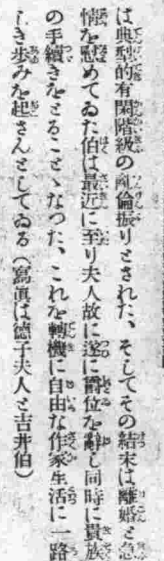 は典型的有閑階級の亂倫振りとされた、そしてその結末は離婚と急
情を慰めてゐた伯は最近に至り夫人故に遂に爵位を辭し同時に貴族
の手續きをとることゝなつた、これを轉機に自由な作家生活に一路
しき歩みを起さんとしてゐる（寫眞は德子夫人と吉井伯）